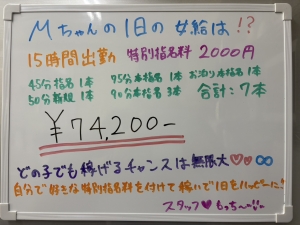 Mちゃんの1日の女給は!?
15時間出勤 特別指名料 2000円
45分指名 1本 75分本指名 1本 お泊り本指名 1本
50分新規 1本 90分本指名 3本 合計:7本
¥74,200-
どの子でも稼げるチャンスは無限大♡♡∞
自分で好きな特別指名料を付けて稼いで1日をハッピーに!!
スタッフ♥もっち〜